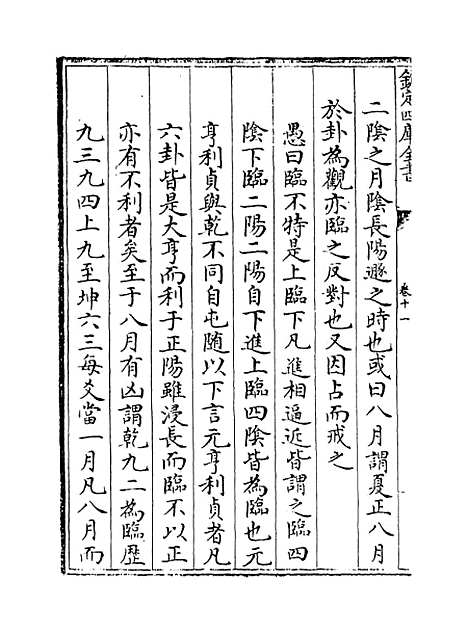 欽定四庫全書
卷十一
二陰之月陰長陽遯之時也或曰八月謂夏正八月
於卦為觀亦臨之反對也又因占而戒之
愚曰臨不特是上臨下凡進相逼近皆謂之臨四
陰下臨二陽二陽自下進上臨四陰皆為臨也元
亨利貞與乾不同自屯隨以下言元亨利貞者凡
六卦皆是大亨而利于正陽雖浸長而臨不以正
亦有不利者矣至于八月有凶謂乾九二為臨歷
九三九四上九至坤六三每爻當一月凡八月而